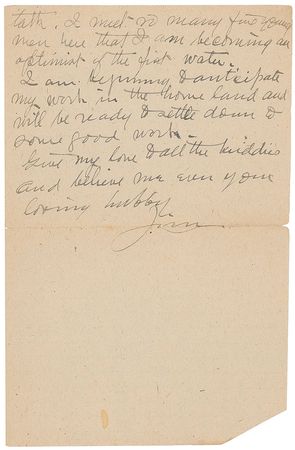 talk. I meet so many fine young
men here that I am becoming an
optimist of the first water.
I am beginning to anticipate
my work in the home land and
will be ready to settle down to
some good work.
Give my love to all the kiddies
and believe me ever your
loving hubby
Jim